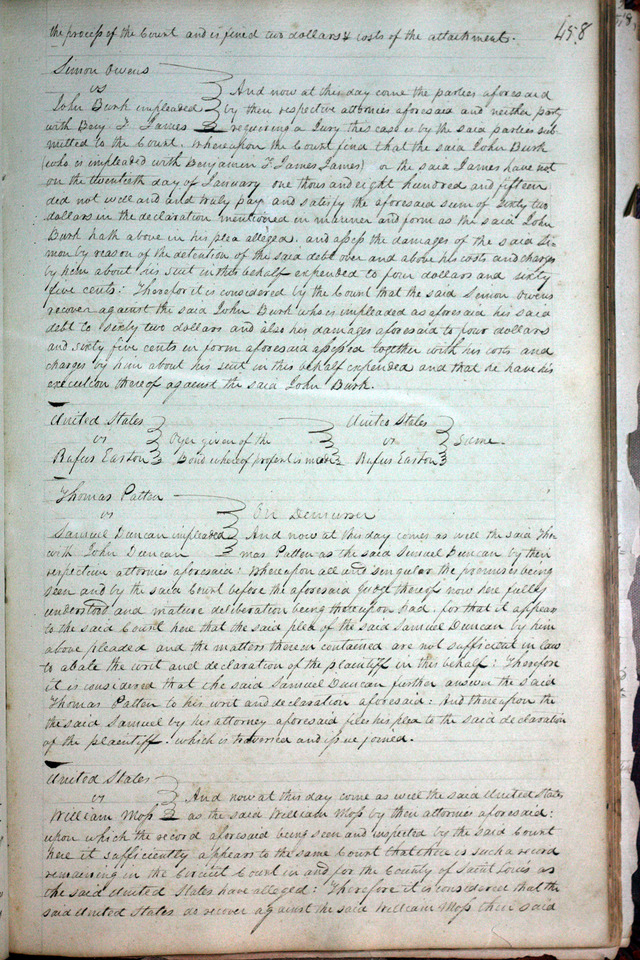 the process of the Court and is fined two dollars & costs of the attachment.
458
Simon Owens
vs
John Burk impleaded
with Benj. F. James
And now at this day come the parties aforesaid
by their respective attornies aforesaid and neither party
requiring a Jury this case is by the said parties sub
mitted to the Court. Whereupon the Court find that the said John Burk
(who is impleaded with Benjamin F. James James) or the said James have not
on the twentieth day of January one thousand eight hundred and fifteen
did not well and and truly pay and satisfy the aforesaid sum of Sixty two
dollars in the declaration mentioned in manner and form as the said John
Burk hath above in his plea alleged. and assess the damages of the said Si-
mon by reason of the detention of the said debt over and above his costs and charges
by him about his suit in this behalf expended to four dollars and sixty
five cents: Therefore it is considered by the Court that the said Simon Owens
recover against the said John Burk who is impleaded as aforesaid his said
debt to sixty two dollars and also his damages aforesaid to four dollars
and sixty five cents in form aforesaid assessed together with his costs and
charges by him about his suit in this behalf expended and that he have his
execution thereof against the said John Burk.
United States
vs
Rufus Easton
Oyer given of the
Bond whereof profert is made
United States
vs
Rufus Easton
Same.
Thomas Patten
vs
Samuel Duncan impleaded
with John Duncan
On Demurrer
And now at this day comes as well the said Tho
mas Patten as the said Samuel Duncan by their
respective attornies aforesaid: Whereupon all and singular the premises being
seen and by the said Court before the aforesaid Judges thereof now here fully
understood and mature deliberation being thereupon had. for that it appears
to the said Court here that the said plea of the said Samuel Duncan by him
above pleaded and the matters therein contained are not sufficient in law
to abate the writ and declaration of the plaintiff in this behalf: Therefore
it is considered that the said Samuel Duncan further answer the said
Thomas Patten to his writ and declaration aforesaid: And thereupon the
the said Samuel by his attorney aforesaid files his plea to the said declaration
of the plaintiff. which is traversed and issue joined.
United States
vs
William Moss
And now at this day come as well the said United States
as the said William Moss by their attornies aforesaid:
upon which the record aforesaid being seen and inspected by the said Court
here it sufficiently appears to the same Court that there is such a record
remaining in the Circuit Court in and for the County of Saint Louis as
the said United States have alleged: Therefore it is considered that the
said United States do recover against the said William Moss their said